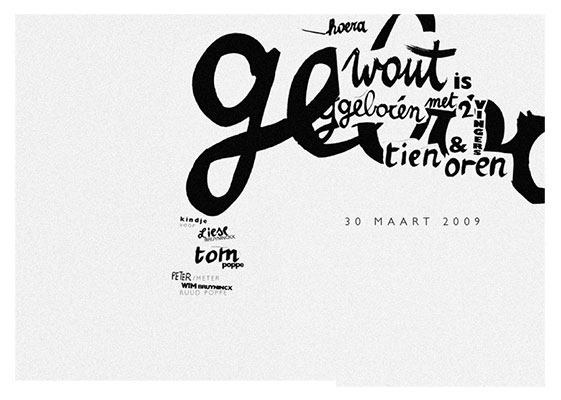 hoera
wout is
geboren met 2
VINGERS
&
tien oren
30 MAART 2009
kindje
VOOR
Liese
BRUYNINCKX
tom
poppe
PETER/METER
WIM BRUYNINCX
RUUD POPPE